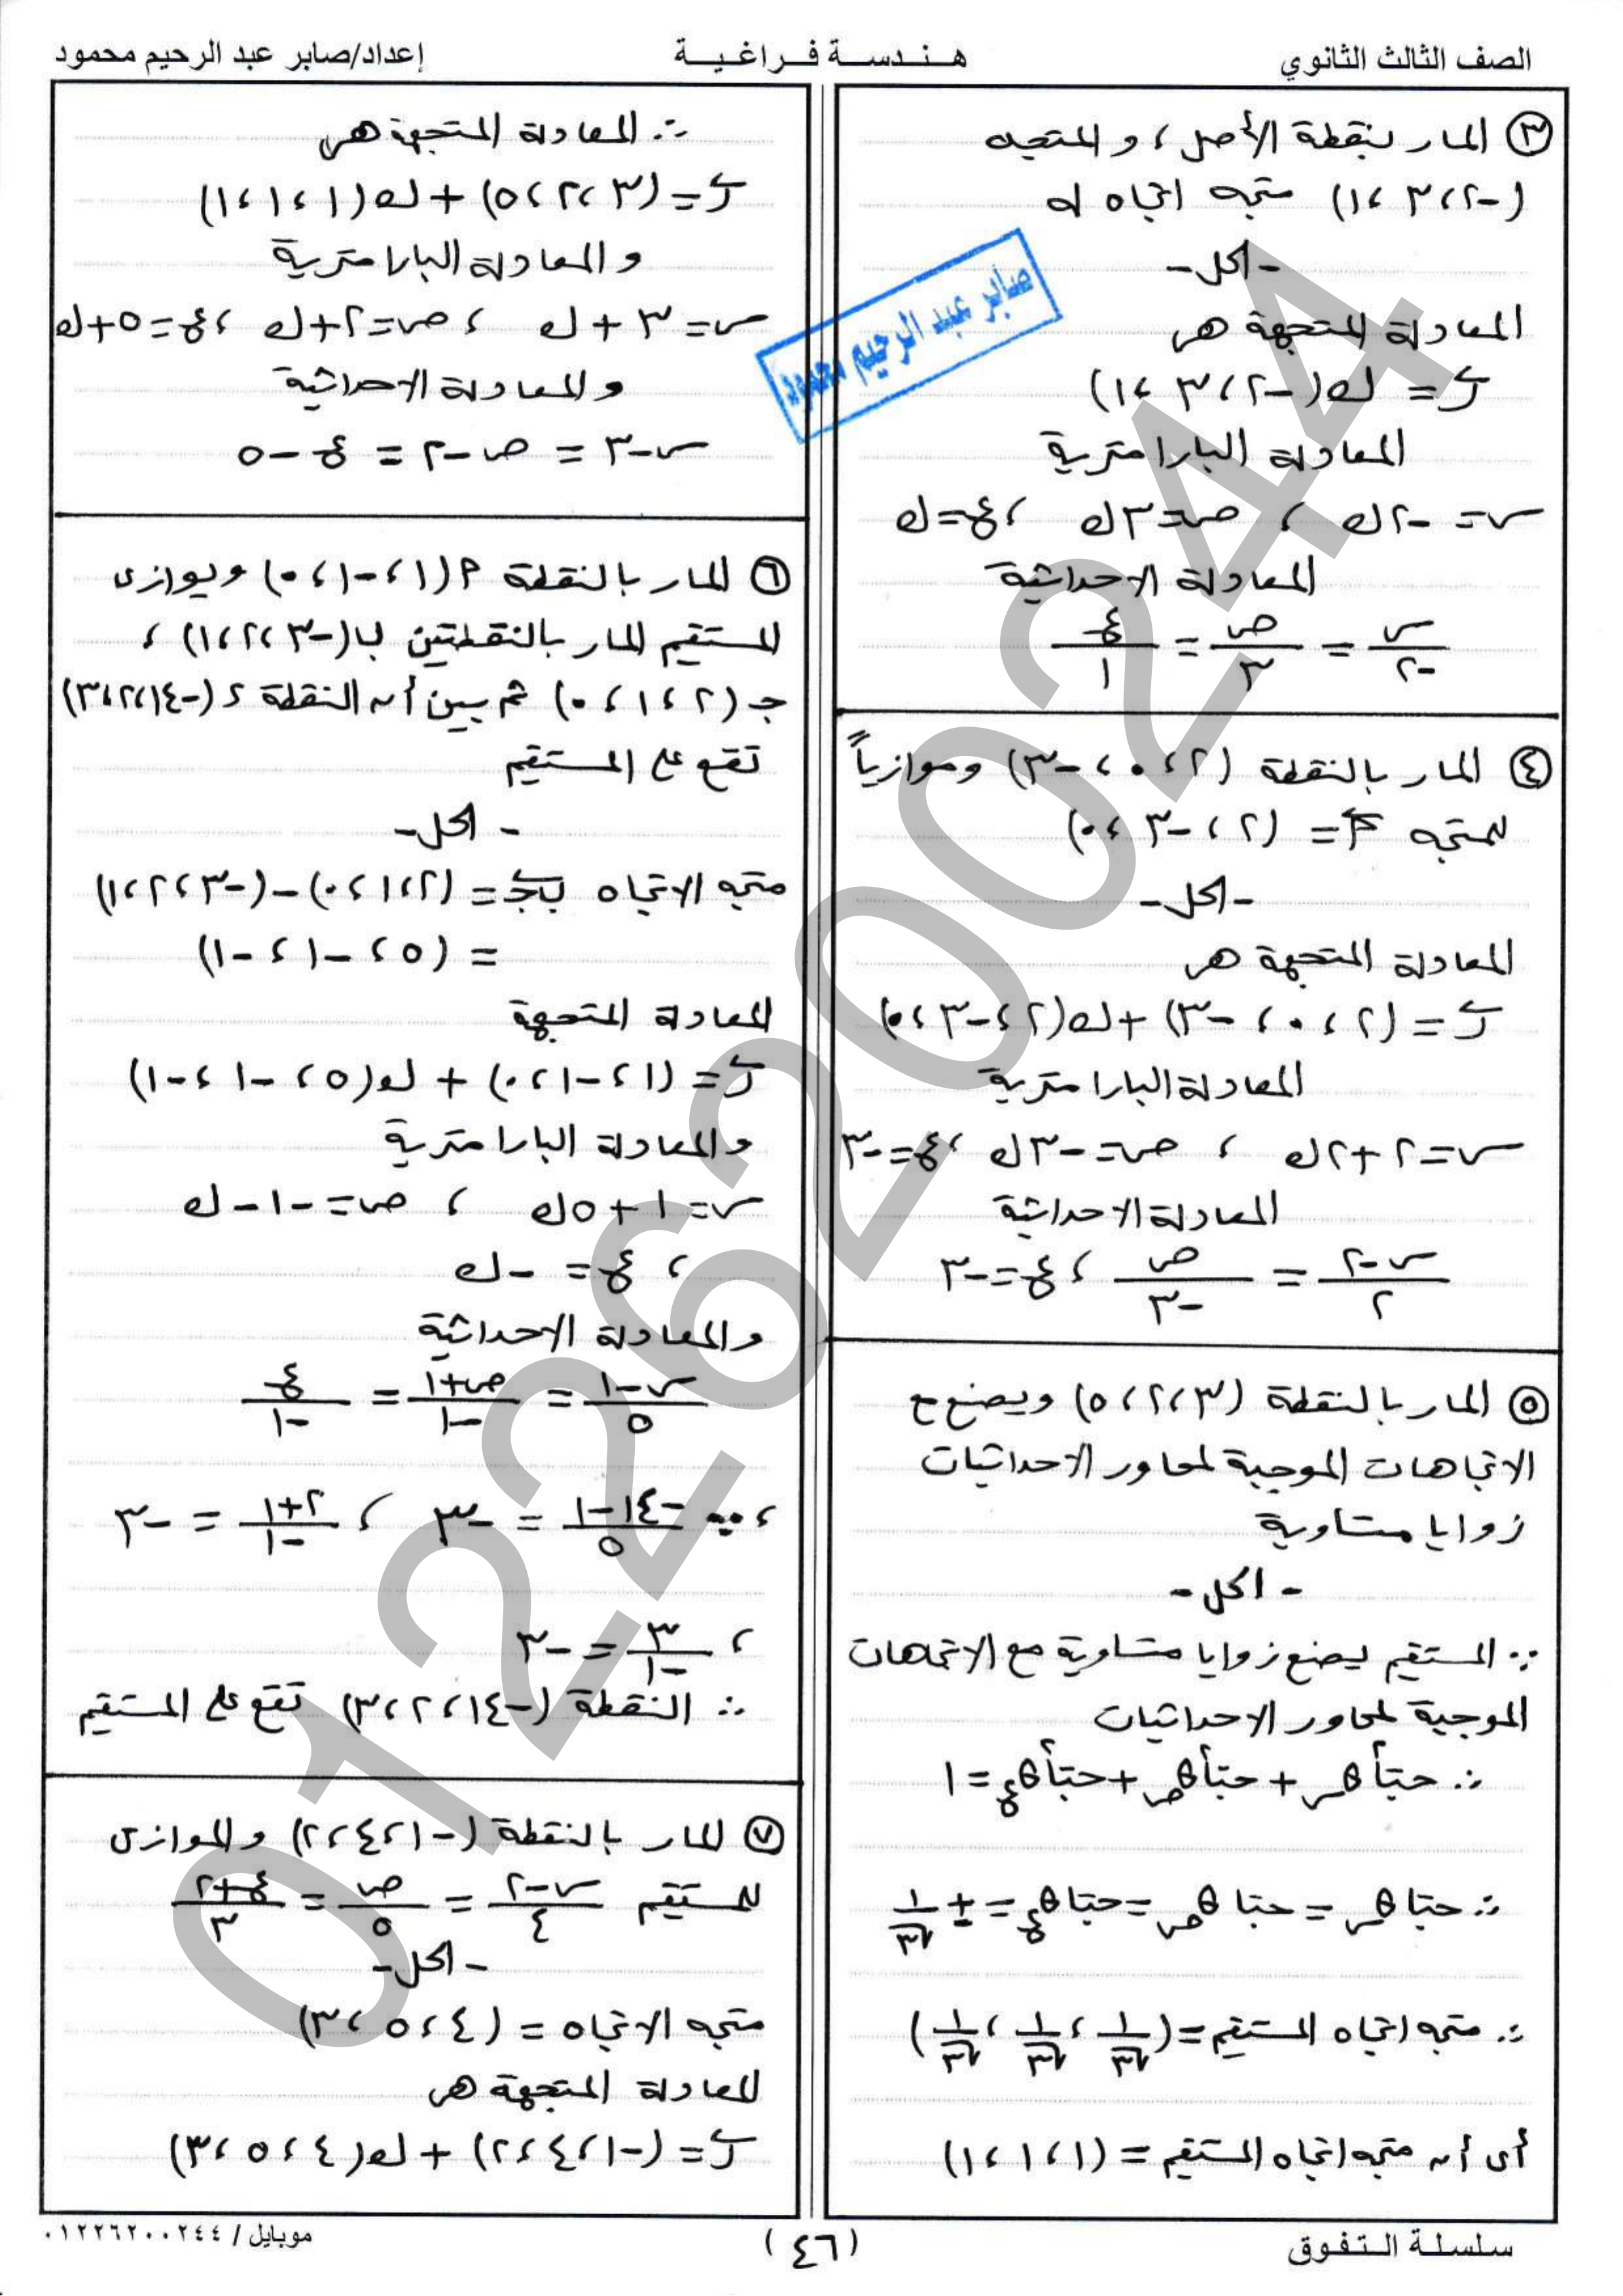 الصف الثالث الثانوي
هندسة فراغية
إعداد/صابر عبد الرحيم محمود
٣ المار بنقطة الأصل ، والمتجه
(-٢ ، ٣ ، ١) متجه اتجاه له
- الحل -
المعادلة المتجهة هي
ر = ك(-٢ ، ٣ ، ١)
المعادلة البارامترية
س = -٢ك ، ص = ٣ك ، ع = ك
المعادلة الاحداثية
س/-٢ = ص/٣ = ع/١
٤ المار بالنقطة (٢ ، ٠ ، -٣) وموازياً
للمتجه م = (٢ ، -٣ ، ٠)
- الحل -
المعادلة المتجهة هي
ر = (٢ ، ٠ ، -٣) + ك(٢ ، -٣ ، ٠)
المعادلة البارامترية
س = ٢ + ٢ك ، ص = -٣ك ، ع = -٣
المعادلة الاحداثية
س-٢/٢ = ص/-٣ ، ع = -٣
٥ المار بالنقطة (٣ ، ٢ ، ٥) ويصنع مع
الاتجاهات الموجبة لمحاور الاحداثيات
زوايا متساوية
- الحل -
∵ المستقيم يصنع زوايا متساوية مع الاتجاهات
الموجبة لمحاور الاحداثيات
∴ حتا²هس + حتا²هص + حتا²هع = ١
∴ حتا هس = حتا هص = حتا هع = ± ١/√٣
∴ متجه اتجاه المستقيم = (١/√٣ ، ١/√٣ ، ١/√٣)
أى أن متجه اتجاه المستقيم = (١ ، ١ ، ١)
∴ المعادلة المتجهة هي
ر = (٣ ، ٢ ، ٥) + ك(١ ، ١ ، ١)
والمعادلة البارامترية
س = ٣ + ك ، ص = ٢ + ك ، ع = ٥ + ك
والمعادلة الاحداثية
س - ٣ = ص - ٢ = ع - ٥
٦ المار بالنقطة م(١ ، -١ ، ٠) ويوازى
المستقيم المار بالنقطتين ب(-٣ ، ٢ ، ١) ،
جـ (٢ ، ١ ، ٠) ثم بين أن النقطة ء (-١٤ ، ٢ ، ٣)
تقع على المستقيم
- الحل -
متجه الاتجاه ب جـ = (٢ ، ١ ، ٠) - (-٣ ، ٢ ، ١)
= (٥ ، -١ ، -١)
المعادلة المتجهة
ر = (١ ، -١ ، ٠) + ك(٥ ، -١ ، -١)
والمعادلة البارامترية
س = ١ + ٥ك ، ص = -١ - ك
، ع = -ك
والمعادلة الاحداثية
س-١/٥ = ص+١/-١ = ع/-١
، ∵ -١٤-١/٥ = -٣ ، ٢+١/-١ = -٣
، ٣/-١ = -٣
∴ النقطة (-١٤ ، ٢ ، ٣) تقع على المستقيم
٧ المار بالنقطة (-١ ، ٤ ، ٢) والموازى
للمستقيم س-٢/٤ = ص/٥ = ع+٢/٣
- الحل -
متجه الاتجاه = (٤ ، ٥ ، ٣)
المعادلة المتجهة هي
ر = (-١ ، ٤ ، ٢) + ك(٤ ، ٥ ، ٣)
صابر عبد الرحيم محمود
01226200244
سلسلة التفوق
(٤٦)
موبايل / ٠١٢٢٦٢٠٠٢٤٤